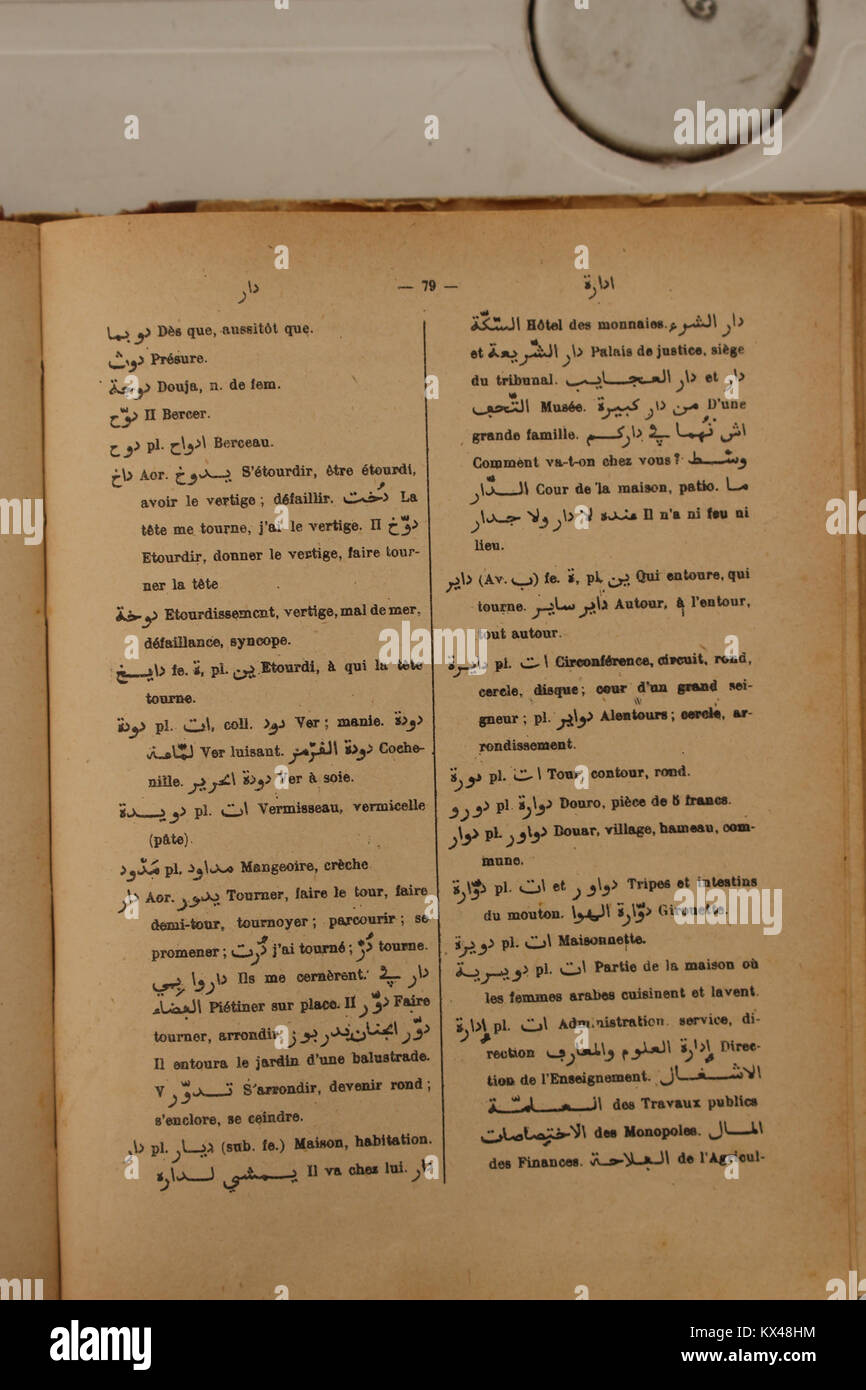 دار — 79 — ادارة
دو بما Dès que, aussitôt que.
دوث Présure.
دوجة Douja, n. de fem.
دوّح II Bercer.
دوح pl. ادواح Berceau.
داخ Aor. يدوخ S'étourdir, être étourdi,
avoir le vertige ; défaillir. دُخت La
tête me tourne, j'ai le vertige. II دوّخ
Etourdir, donner le vertige, faire tour-
ner la tête
دوخة Etourdissement, vertige, mal de mer,
défaillance, syncope.
دايخ fe. ة, pl. ين Etourdi, à qui la tête
tourne.
دودة pl. ات, coll. دود Ver ; manie. دودة
لمّاعة Ver luisant. دودة الفرمز Coche-
nille. دودة الحرير Ver à soie.
دويدة pl. ات Vermisseau, vermicelle
(pâte).
مَدّود pl. مداود Mangeoire, crèche
دار Aor. يدور Tourner, faire le tour, faire
demi-tour, tournoyer ; parcourir ; se
promener ; دُرت j'ai tourné ; دُر tourne.
داروا بي Ils me cernèrent. دار في
الفضاء Piétiner sur place. II دوّر Faire
tourner, arrondir دوّر الجنان بدربوز
Il entoura le jardin d'une balustrade.
V تدوّر S'arrondir, devenir rond ;
s'enclore, se ceindre.
دار pl. ديار (sub. fe.) Maison, habitation.
يمشي لداره Il va chez lui. دار
السّكّة Hôtel des monnaies. دار الشرع
et دار الشّريعة Palais de justice, siège
du tribunal. دار العجايب et دار
التّحف Musée. من دار كبيرة D'une
grande famille. اش نهما في داركم
Comment va-t-on chez vous ? وسط
الدّار Cour de la maison, patio. ما
عنده لا دار ولا جدار Il n'a ni feu ni
lieu.
داير (Av. ب) fe. ة, pl. ين Qui entoure, qui
tourne. داير ساير Autour, à l'entour,
tout autour.
دايرة pl. ات Circonférence, circuit, rond,
cercle, disque ; cour d'un grand sei-
gneur ; pl. دواير Alentours ; cercle, ar-
rondissement.
دورة pl. ات Tour, contour, rond.
دورو pl. دوارة Douro, pièce de 5 francs.
دوار pl. دواور Douar, village, hameau, com-
mune.
دوّارة pl. ات et دواور Tripes et intestins
du mouton. دوّارة الهوا Girouette.
دويرة pl. ات Maisonnette.
دويرية pl. ات Partie de la maison où
les femmes arabes cuisinent et lavent.
إدارة pl. ات Administration. service, di-
rection إدارة العلوم والمعارف Direc-
tion de l'Enseignement. الاشغال
العامّة des Travaux publics
الاختصاصات des Monopoles. المال
des Finances. الفلاحة de l'Agricul-
alamy
Image ID: KX48HM
www.alamy.com